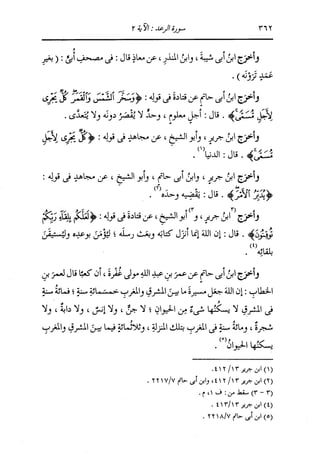 ٣٦٢ سورة الرعد : الآية ٢
وأخرج ابنُ أبى شيبةَ ، وابنُ المنذرِ ، عن معاذٍ قال : فى مصحفِ أُبىٍّ : ( بغيرِ
عَمَدٍ تَرَوْنَه ) .
وأخرَج ابنُ أبى حاتمٍ عن قتادةَ فى قولِه : ﴿وَسَخَّرَ ٱلشَّمْسَ وَٱلْقَمَرَ كُلٌّ يَجْرِى
لِأَجَلٍ مُّسَمًّى﴾ . قال : أجلٌ معلومٌ ، وحدٌّ لا يُقصَرُ دونَه ولا يُتعدَّى .
وأخرَج ابنُ جريرٍ ، وأبو الشيخِ ، عن مجاهدٍ فى قولِه : ﴿كُلٌّ يَجْرِى لِأَجَلٍ
مُّسَمًّى﴾ . قال : الدنيا(١) .
وأخرَج ابنُ جريرٍ ، وابنُ أبى حاتمٍ ، وأبو الشيخِ ، عن مجاهدٍ فى قولِه :
﴿يُدَبِّرُ ٱلْأَمْرَ﴾ . قال : يَقْضِيه وحدَه(٢) .
وأخرَج (٣ابنُ جريرٍ ، و٣)أبو الشيخِ ، عن قتادةَ فى قولِه : ﴿لَعَلَّكُم بِلِقَآءِ رَبِّكُمْ
تُوقِنُونَ﴾ . قال : إن اللهَ إنما أنزَل كتابَه وبعَث رسلَه ؛ ليُؤْمَنَ بوعدِه ولِيُسْتَيْقَنَ
بلقائِه(٤) .
وأخرَج ابنُ أبى حاتمٍ عن عمرَ بنِ عبدِ اللهِ مولى غُفْرةَ ، أن كعبًا قال لعمرَ بنِ
الخطابِ : إن اللهَ جعَل مسيرةَ ما بينَ المشرقِ والمغربِ خمسَمائةِ سنةٍ ؛ فمائةُ سنةٍ
فى المشرقِ لا يسكُنُها شىءٌ مِن الحيوانِ ؛ لا جنٌّ ، ولا إنسٌ ، ولا دابةٌ ، ولا
شجرةٌ ، ومائةُ سنةٍ فى المغربِ بتلك المنزلةِ ، وثلاثُمائةٍ فيما بينَ المشرقِ والمغربِ
يسكُنُها الحيوانُ(٥) .
(١) ابن جرير ٤١٢/١٣ .
(٢) ابن جرير ٤١٢/١٣ ، وابن أبى حاتم ٢٢١٧/٧ .
(٣ - ٣) سقط من : ف ١ ، م .
(٤) ابن جرير ٤١٣/١٣ .
(٥) ابن أبى حاتم ٢٢١٨/٧ .